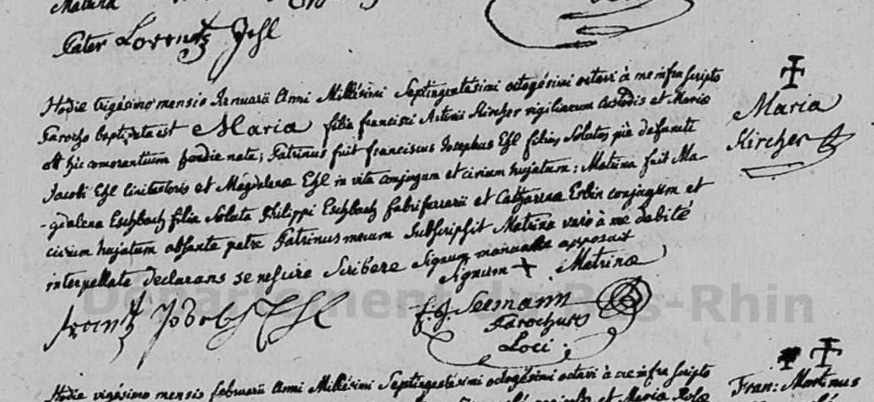 Matrina
Pater Lorentz Johl
Hodie trigesimo mensis Januarii Anni Millesimi Septingentesimi octogesimi octavi à me infra scripto
Parocho baptizata est Maria filia francisci Antonii Kircher vigiliarum Custodis et Mariae
hic comorantium pridie nata; Patrinus fuit franciscus Josephus Ehl filius Solutus piè defuncti
Jacobi Ehl et Magdalena Ehl in vita conjugum et civium hujatum: Matrina fuit Ma-
-gdalena Eschbach filia Soluta Philippi Eschbach fabri ferrarii et Catharina Erbin conjugum et
civium hujatum absente patre Patrinus mecum Subscripsit Matrina verò à me debitè
interpellata declarans se nescire Scribere Signum manuale apposuit
Signum + Matrinae
Frantz Joseph Ehl
F. J. Seemann
Parochus
Loci
Maria
Kircher
Hodie vigesimo mensis februarii Anni Millesimi Septingentesimi octogesimi octavi à me infra scripto
et Maria Rosa
Fran: Martinus
Departement du Bas-Rhin